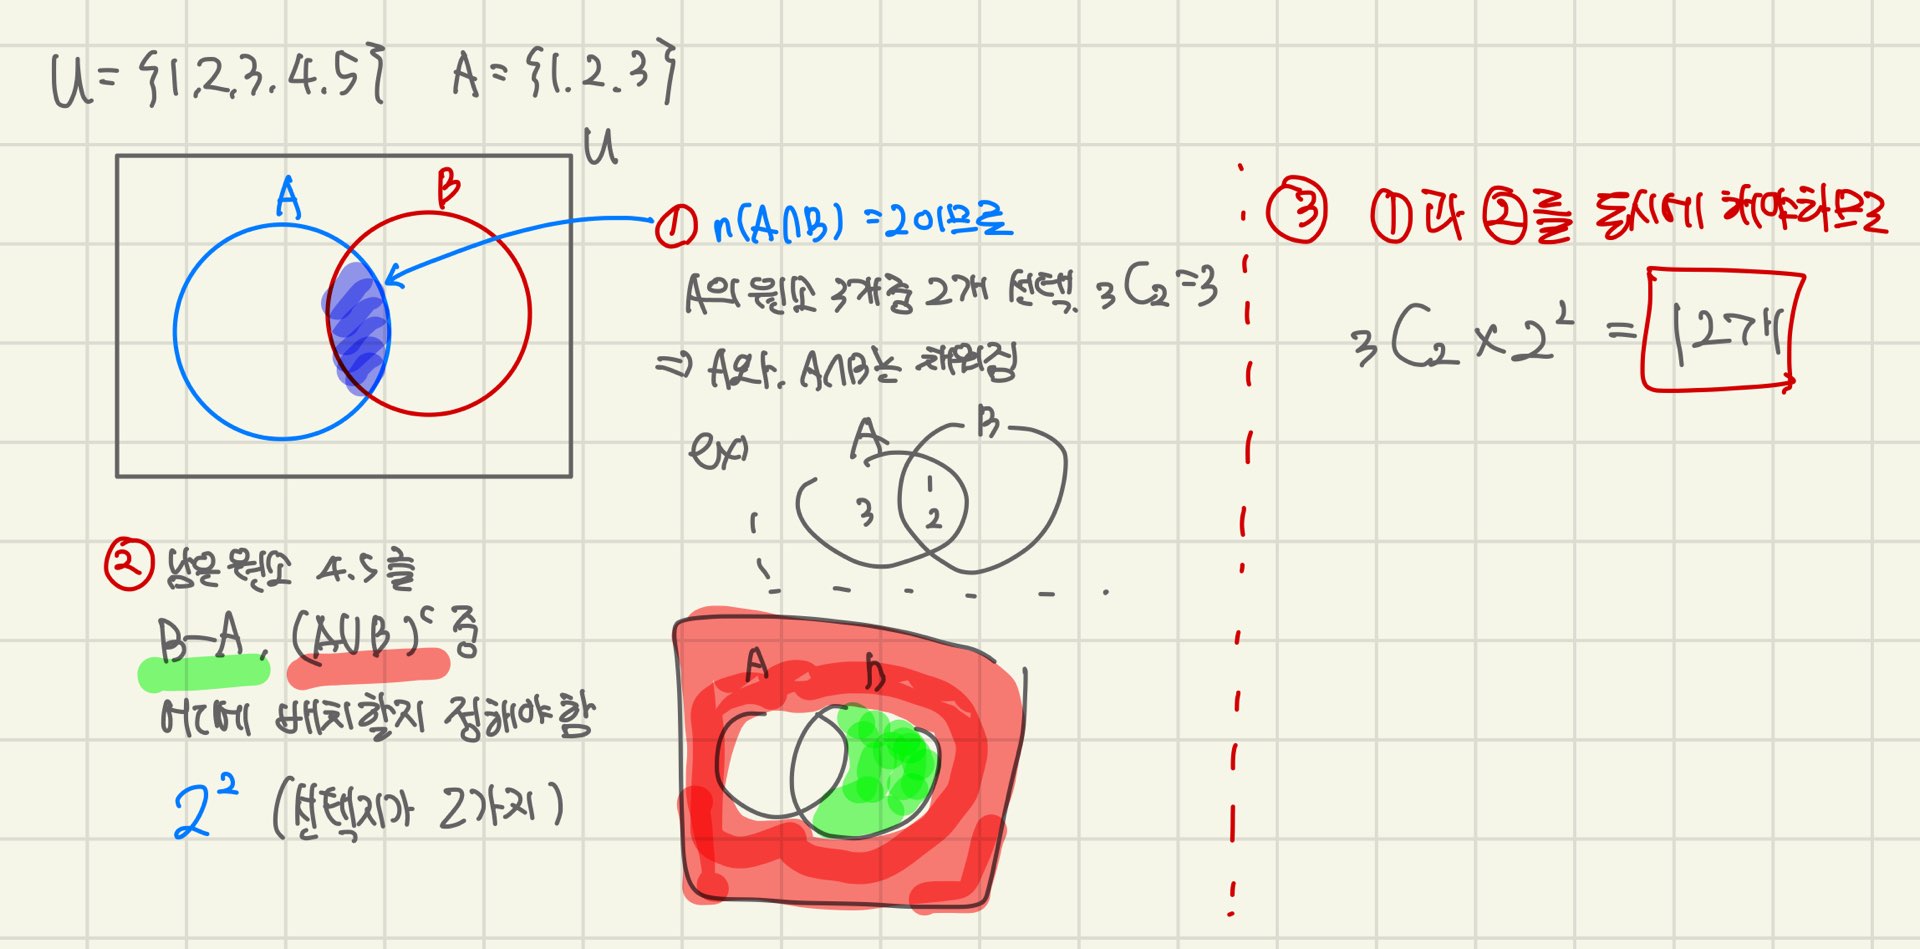 U = {1,2,3,4,5} A = {1,2,3}
U
A B
① n(A∩B) = 2이므로
A의 원소 3개중 2개 선택. ₃C₂=3
⇒ A와, A∩B는 채워짐
ex)
A B
3 1 2
② 남은 원소 4,5를
B-A, (A∪B)ᶜ 중
어디에 배치할지 정해야함
2² (선택지가 2가지)
A B
③ ①과 ②를 동시에 해야하므로
₃C₂ × 2² = 12개